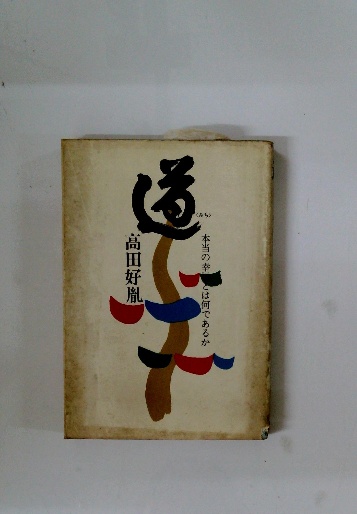 道
〈みち〉
本当の幸せとは何であるか
高田好胤